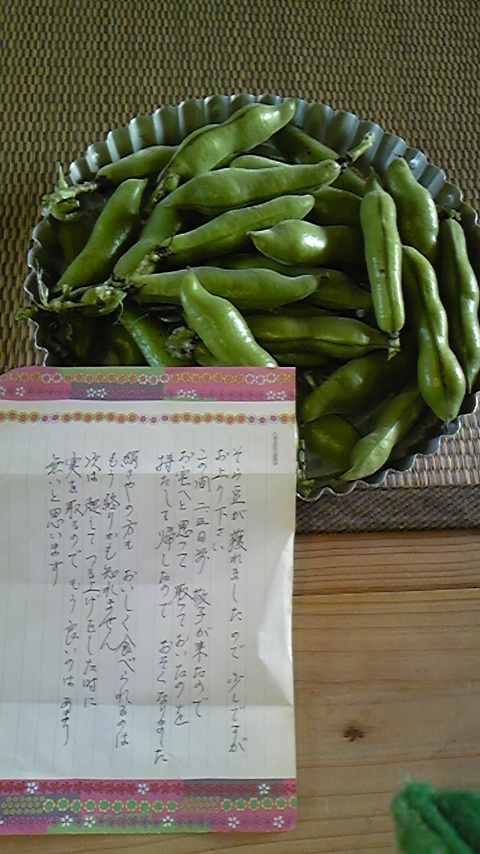 そら豆が獲れましたので 少しですが
お上り下さい
この間 二三日前 敬子が来たので
お宅へと思って 取っておいたのを
持たして帰したので おそくなりました
絹さやの方も おいしく食べられるのは
もう終りかも知れません
次は 越して つる上げをした時に
実を取るので もう良いのは あまり
無いと思います